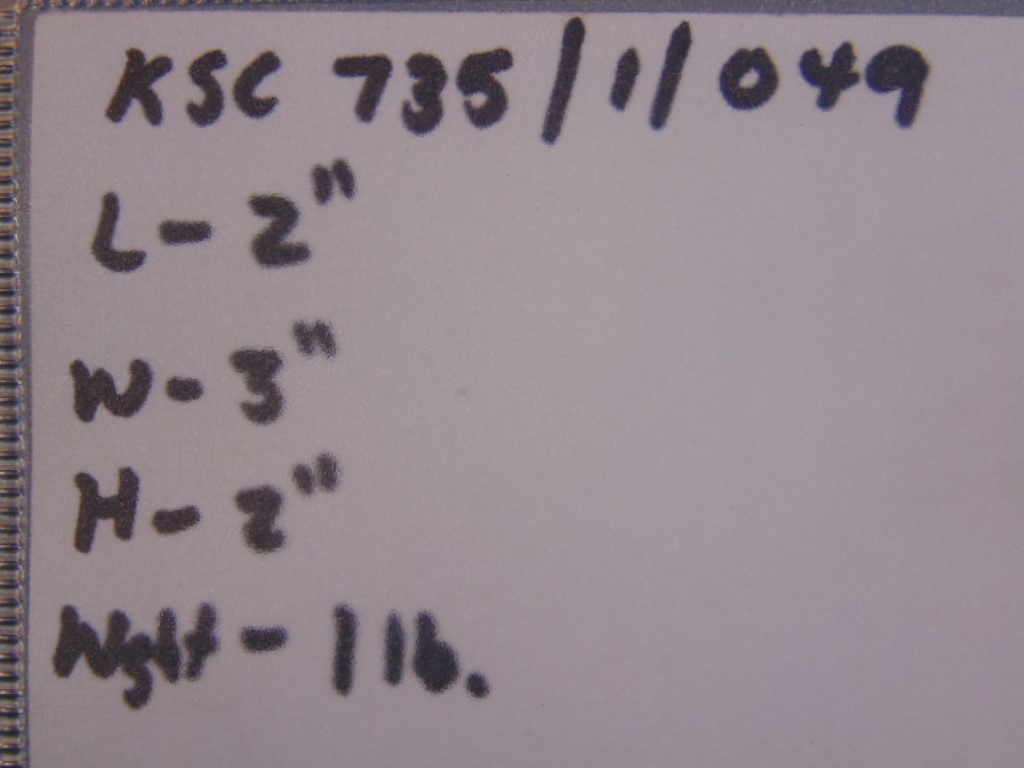 KSC 735/1/049
L - 2"
W - 3"
H - 2"
Wght - 1 lb.